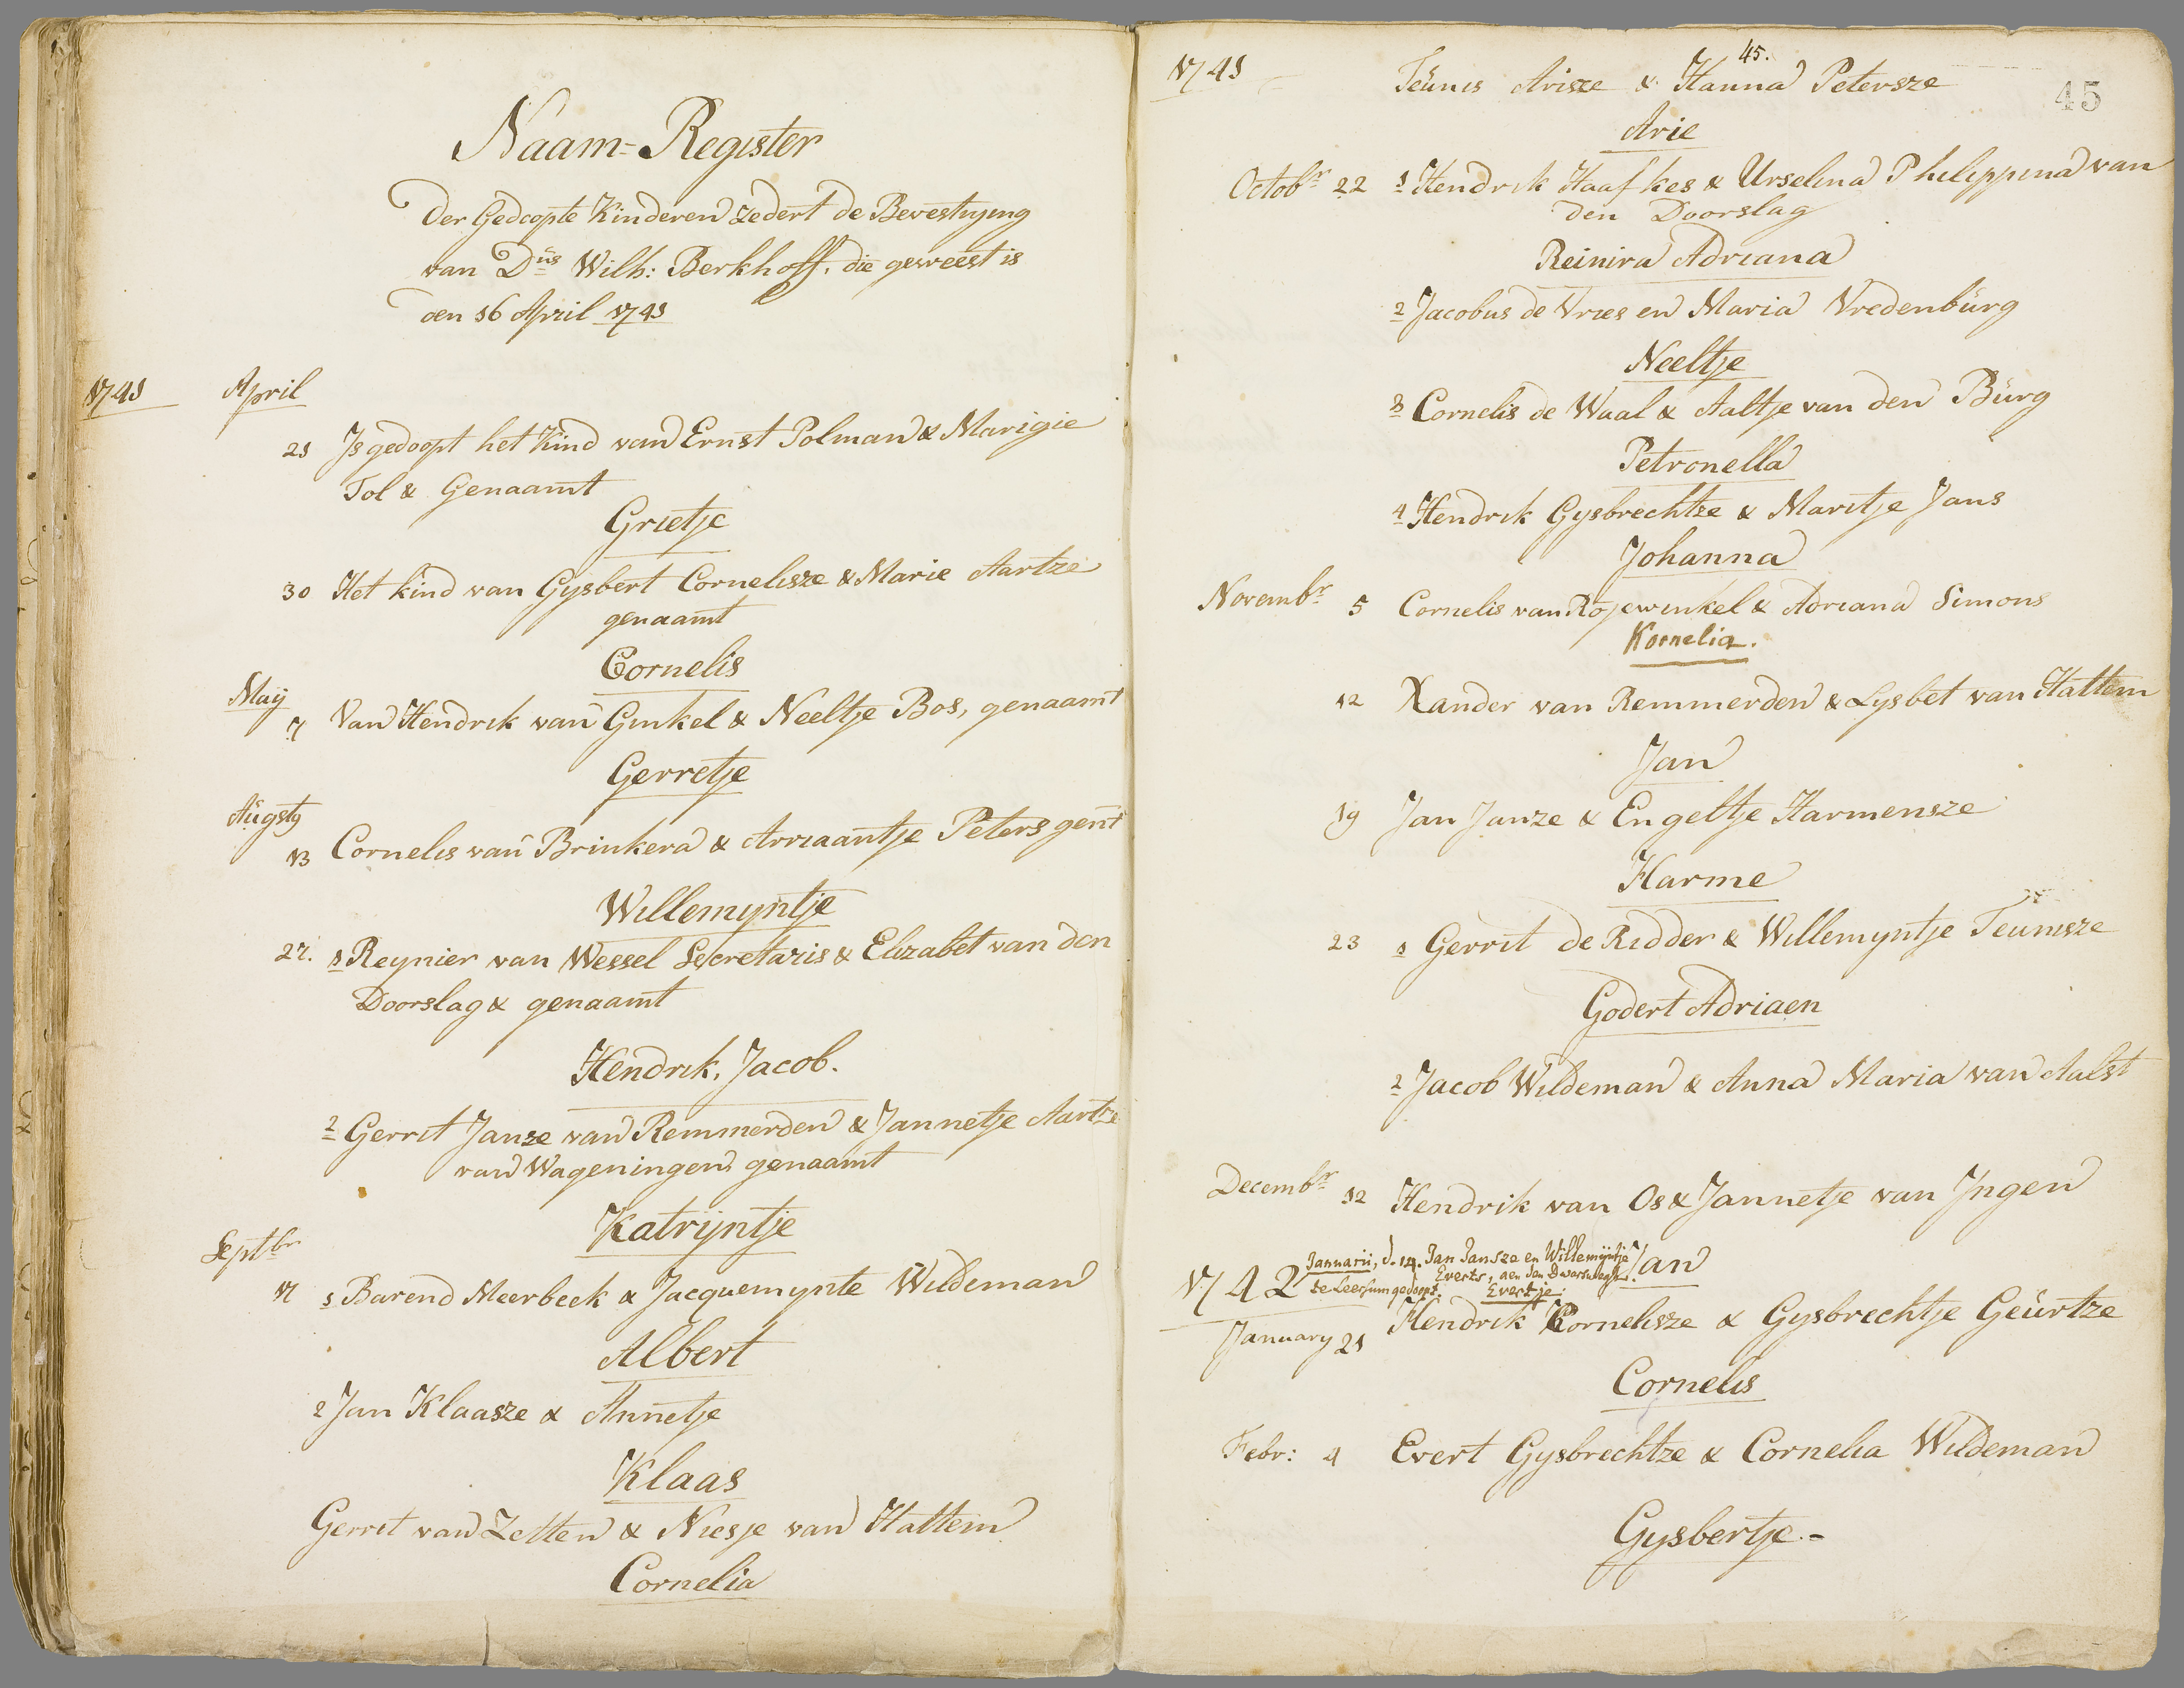 Naam-Register
Der Gedoopte Kinderen zedert de Bevestyng
van Dūs Wilh: Berkhoff. die geweest is
den 16 April 1741
1741 April
21 Is gedoopt het Kind van Ernst Polman & Marigie
Tol & Genaamt
Grietje
30 Het kind van Gysbert Cornelisze & Marie Aartze
genaamt
Cornelis
May
7 Van Hendrik van Ginkel & Neeltje Bos, genaamt
Gerretje
Augst9
13 Cornelis van Brinkera & Arriaantje Peters gent
Willemyntje
27. 1 Reynier van Wessel Secretaris & Elizabet van den
Doorslag & genaamt
Hendrik. Jacob.
2 Gerrit Janze van Remmerden & Jannetje Aartze
van Wageningen genaamt
Katrijntje
Septbr
17 1 Barend Meerbeek & Jacquemynte Wildeman
Albert
2 Jan Klaasze & Annetje
Klaas
Gerrit van Zetten & Niesje van Hattem
Cornelia
45.
1741 Teunis Arisze & Hanna Petersze 45
Arie
Octobr 22 1 Hendrik Haafkes & Urselina Philippina van
den Doorslag
Reinira Adriana
2 Jacobus de Vries en Maria Vredenburg
Neeltje
3 Cornelis de Waal & Aaltje van den Burg
Petronella
4 Hendrik Gysbrechtze & Maritje Jans
Johanna
Novembr 5 Cornelis van Rojewinkel & Adriana Simons
Kornelia.
12 Xander van Remmerden & Lysbet van Hattem
Jan
19 Jan Janze & Engeltje Harmensze
Harme
23 1 Gerrit de Ridder & Willemyntje Teunisze
Godert Adriaen
2 Jacob Wildeman & Anna Maria van Aalst
Decembr 12 Hendrik van Os & Jannetje van Ingen
Jan
1742 Januarii, d. 14. Jan Jansze en Willemijntje
Everts, aen den Dwarsweg
te Leersum gedoopt. Evertje.
January 21 Hendrik Cornelisze & Gysbrechtje Geurtze
Cornelis
Febr: 4 Evert Gysbrechtze & Cornelia Wildeman
Gysbertje.-